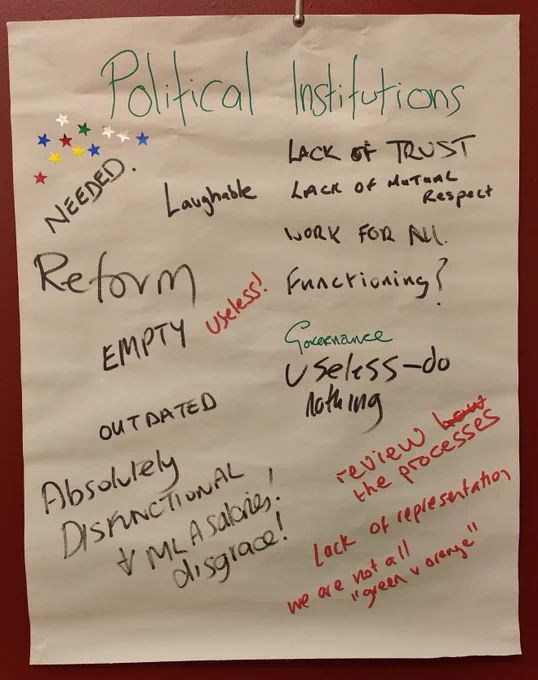 Political Institutions
NEEDED.
Laughable
Reform
EMPTY
useless!
OUTDATED
Absolutely
DISFUNCTIONAL
↓ MLA salaries!
disgrace!
LACK OF TRUST
LACK OF MUTUAL
Respect
WORK FOR ALL.
Functioning?
Governance
Useless-do
nothing
review
the processes
Lack of representation
we are not all
"green v orange"